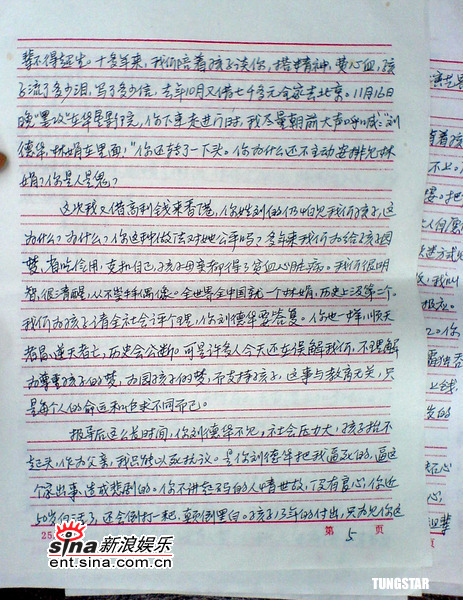 辈不得超生。十多年来，我们陪着孩子读你，搭精神，费心血，孩
子流了多少泪，写了多少信，去年10月又借七千多元全家去北京。11月16日
晚"墨攻"在华星影院，你下车走进门时，我尽量朝前大声呼喊"刘
德华，林娟在里面！"你还转了一下头。你为什么还不主动安排见林
娟？你是人是鬼？
这次我又借高利钱来香港，你姓刘的仍不见我们孩子，这
为什么？为什么？你这种做法对她公平吗？多年来我们为给孩子圆
梦，省吃俭用，克扣自己，孩子母亲都得了贫血心脏病。我们很明
智，很清醒，从不崇拜偶像。全世界全中国就一个林娟，历史上没第二个。
我们为孩子请全社会评个理，你刘德华要答复。你也一样，顺天
者昌，逆天者亡，历史会公断。可是许多人今天还在误解我们，不理解
为尊重孩子的梦，为圆孩子的梦，而支持孩子，这事与教育无关，只
是每个人的命运和追求不同而已。
报导后这么长时间，你刘德华不见，社会压力大，孩子抬不
起头，作为父亲，我只能以死抗议。是你刘德华把我逼死的，逼这
个家出事，造成悲剧的。你不讲
人情世故，没有良心，你近
50岁白活了，还会倒打一耙，颠倒黑白。孩子13年的付出，只为见你这
第 5 页
25.
sina 新浪娱乐
ent.sina.com.cn
TUNGSTAR